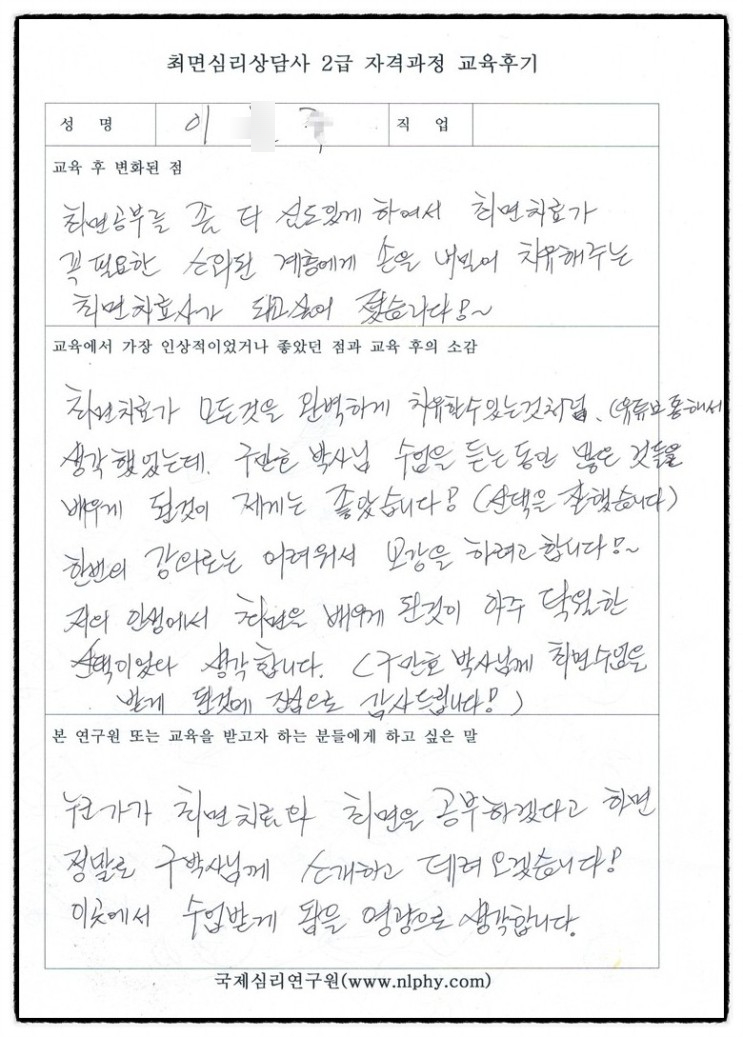 최면심리상담사 2급 자격과정 교육후기
성 명 이 직 업
교육 후 변화된 점
최면공부를 좀 더 심도있게 하여서 최면치료가
꼭 필요한 소외된 계층에게 손을 내밀어 치유해주는
최면치료사가 되고싶어 졌습니다!~
교육에서 가장 인상적이었거나 좋았던 점과 교육 후의 소감
최면치료가 모든것을 완벽하게 치유할수있는것처럼, (유튜브통해서
생각했었는데. 구만호 박사님 수업을 듣는동안 많은 것들을
배우게 된것이 제게는 좋았습니다! (선택을 잘했습니다)
한번의 강의로는 어려워서 보강을 하려고합니다!~
저의 인생에서 최면을 배우게 된것이 아주 탁월한
선택이었다 생각합니다. (구만호박사님께 최면수업을
받게 된것에 진심으로 감사드립니다!)
본 연구원 또는 교육을 받고자 하는 분들에게 하고 싶은 말
누군가가 최면치료와 최면을 공부하겠다고 하면
정말로 구박사님께 소개하고 데려오겠습니다!
이곳에서 수업받게 됨을 영광으로 생각합니다.
국제심리연구원(www.nlphy.com)